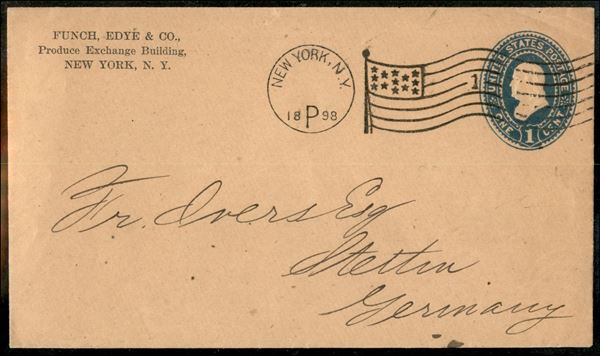 FUNCH, EDYE & CO.,
Produce Exchange Building,
NEW YORK, N. Y.
NEW YORK, N.Y.
18 P 98
1
UNITED STATES POSTAGE
ONE 1 CENT
Fr. Ivers Esq
Stettin
Germany